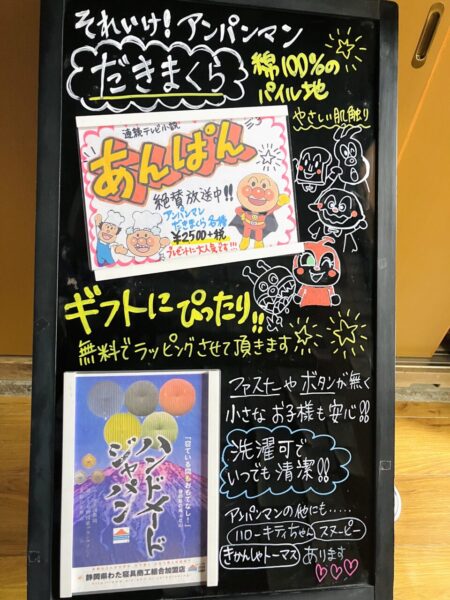 それいけ！アンパンマン
だきまくら
綿100％の
パイル地
やさしい肌触り
連続テレビ小説
あんぱん
絶賛放送中!!
アンパンマン
だきまくら各種
¥2500+税
プレゼントに大人気です!!!
ギフトにぴったり!!
無料でラッピングさせて頂きます
ファスナーやボタンが無く
小さなお子様も安心!!
洗濯可で
いつでも清潔!!
「寝ている間もおもてなし」
ハンドメード
ジャパン
静岡県わた寝具商工組合加盟店
アンパンマンの他にも‥‥‥
ハローキティちゃん スヌーピー
きかんしゃトーマス あります